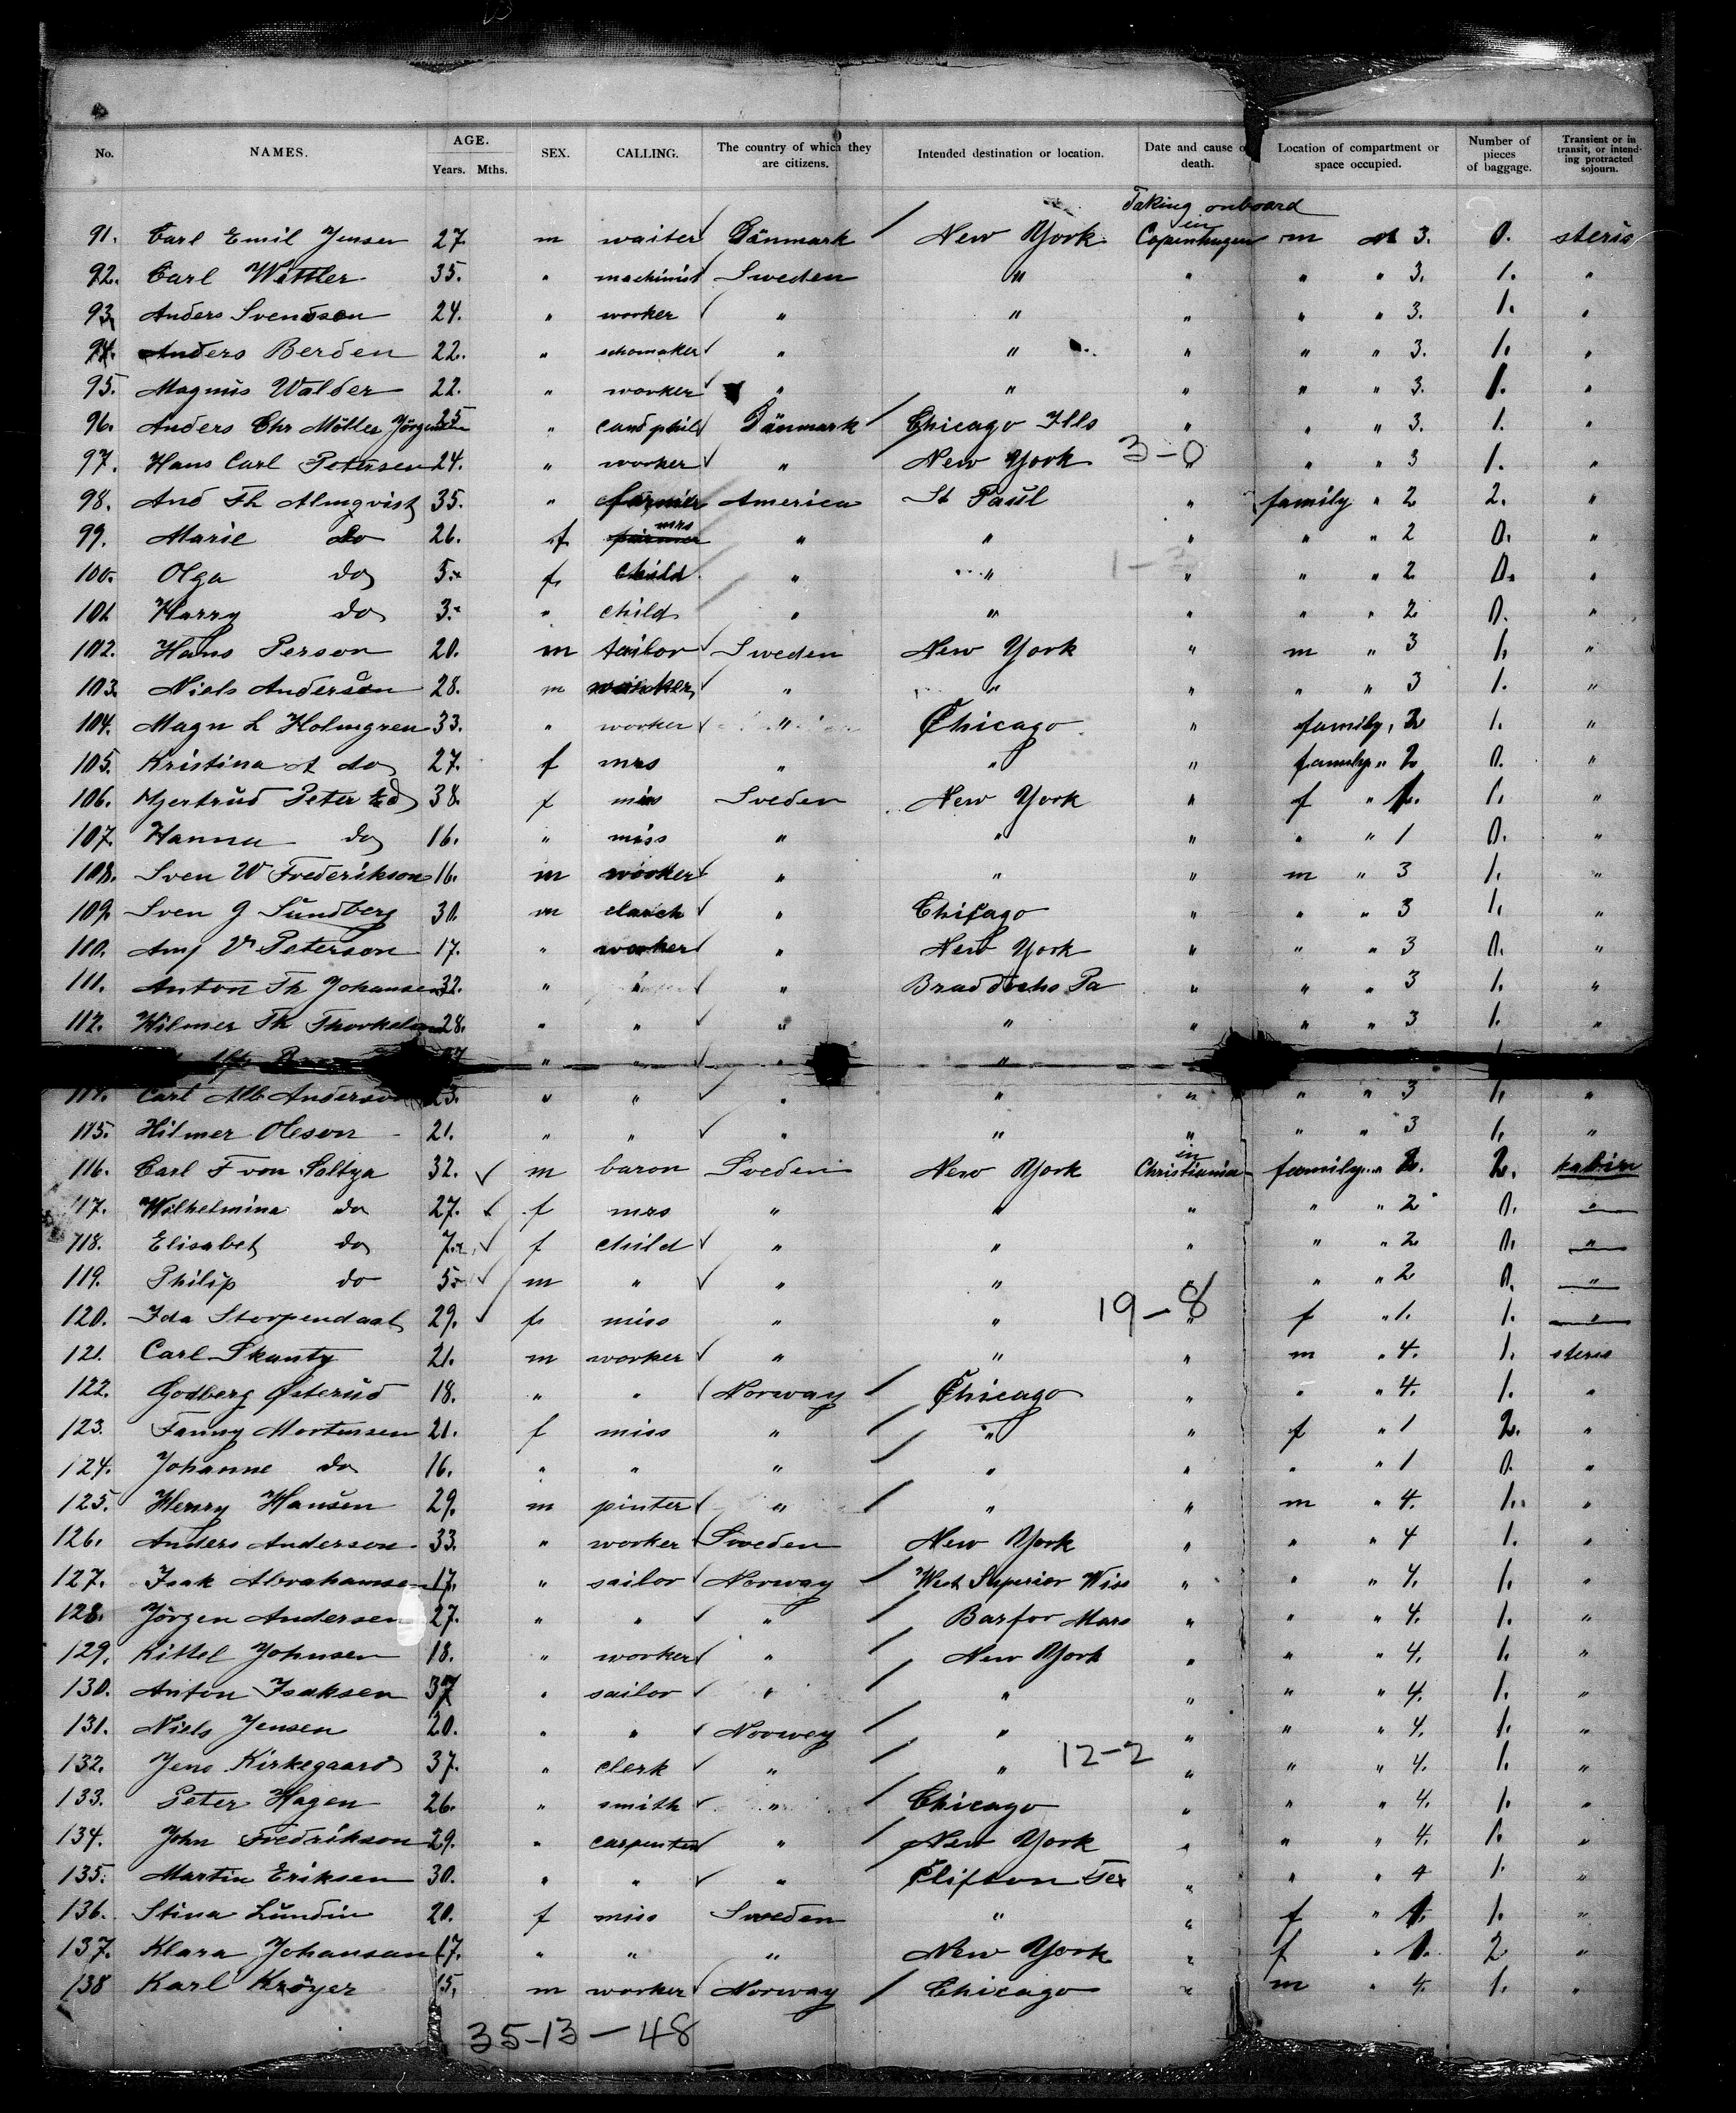 No. NAMES. AGE. Years. Mths. SEX. CALLING. The country of which they are citizens. Intended destination or location. Date and cause of death. Location of compartment or space occupied. Number of pieces of baggage. Transient or in transit, or intending protracted sojourn.
Taking onboard
91. Carl Emil Jensen 27 m waiter Dänmark New York in Copenhagen m 3. 0. steris
92. Carl Wittler 35. " machinist Sweden " " " " 3. 1. "
93 Anders Svendsen 24. " worker " " " " " 3. 1. "
94. Anders Berden 22. " schomaker " " " " " 3. 1. "
95. Magnus Walder 22. " worker " " " " " 3. 1. "
96. Anders Chr Möller Jörgensen 25 " cand phil Dänmark Chicago Ills " " " 3. 1. "
97. Hans Carl Petersen 24. " worker " New York 3-0 " " " 3 1. "
98. And Th Almqvist 35. " farmer America St Paul " family " 2 2. "
99. Marie do 26. f mrs " " " " " 2 0. "
100. Olga do 5. f. child " " " " " 2 0. "
101 Harry do 3. " child " " " " 2 0. "
102. Hans Person 20. m tailor Sweden New York " m " 3 1. "
103. Niels Anderson 28. m worker " " " " 3 1. "
104. Magn L Holmgren 33. " worker " Chicago " family, 2 1. "
105. Kristina A do 27. f mrs " " " family " 2 0. "
106. Hjertrud Peter 38. f Sveden New York " f " 1. 1. "
107. Hanna do 16. " miss " " " " " 1 0. "
108. Sven W Frederikson 16. m worker " " m " 3 1. "
109. Sven G Sundberg 30. m " Chicago " " " 3 1. "
110. V Peterson 17. " worker " New York " " " 3 0. "
111. Anton Th Johansen 32. " " " Braddocks Pa " " " 3 1. "
112. Hilmer Th 28. " " " " " " " 3 1. "
" " " "
114. Carl Alb Anderson 23. " " " " " " " 3 1. "
115. Hilmer Oleson 21. " " " " " " " 3 1. "
116. Carl F von Saltza 32. m baron Sveden New York in Christiania family " 2. 2. kabin
117. Wilhelmina do 27. f mrs " " " " " 2 0. "
118. Elisabet do 7. f child " " " " " 2 0. "
119. Philip do 5 m " " " " " " 2 0. "
120. Ida Storpendaal 29. f. miss " " 19-8 " f " 1. 1. "
121. Carl Skanty 21. m worker " " " m " 4. 1. steris
122. Godberg Østerud 18. " " Norway Chicago " " " 4. 1. "
123. Fanny Mortensen 21. f miss " " " f " 1 2. "
124. Johanne do 16. " " " " " " " 1 0. "
125. Henry Hansen 29. m pinter " " m " 4. 1. "
126. Anders Anderson 33. " worker Sweden New York " " " 4 1. "
127. Isak Abrahamsen 17. " sailor Norway West Superior Wiss " " " 4. 1. "
128. Jörgen Andersen 27. " " " Barfor Mars " " " 4. 1. "
129. Kittel Johnsen 18. " worker " New York " " " 4. 1. "
130. Anton Isaksen 37 " sailor " " " " " 4. 1. "
131. Niels Jensen 20. " " Norwey " " " " 4. 1. "
132. Jens Kirkegaard 37. " clerk " " 12-2 " " " 4. 1. "
133. Peter Hagen 26. " smith " Chicago " " " 4. 1. "
134. John Fredrikson 29. " carpenter " New York " " " 4. 1. "
135. Martin Eriksen 30. " " " Clifton Tex " " " 4 1. "
136. Stina Lundin 20. f miss Sweden " " f " 1. 1. "
137. Klara Johanson 17. " " " New York " f " 1. 2 "
138 Karl Kröyer 15. m worker Norway Chicago " m " 4. 1. "
35-13-48